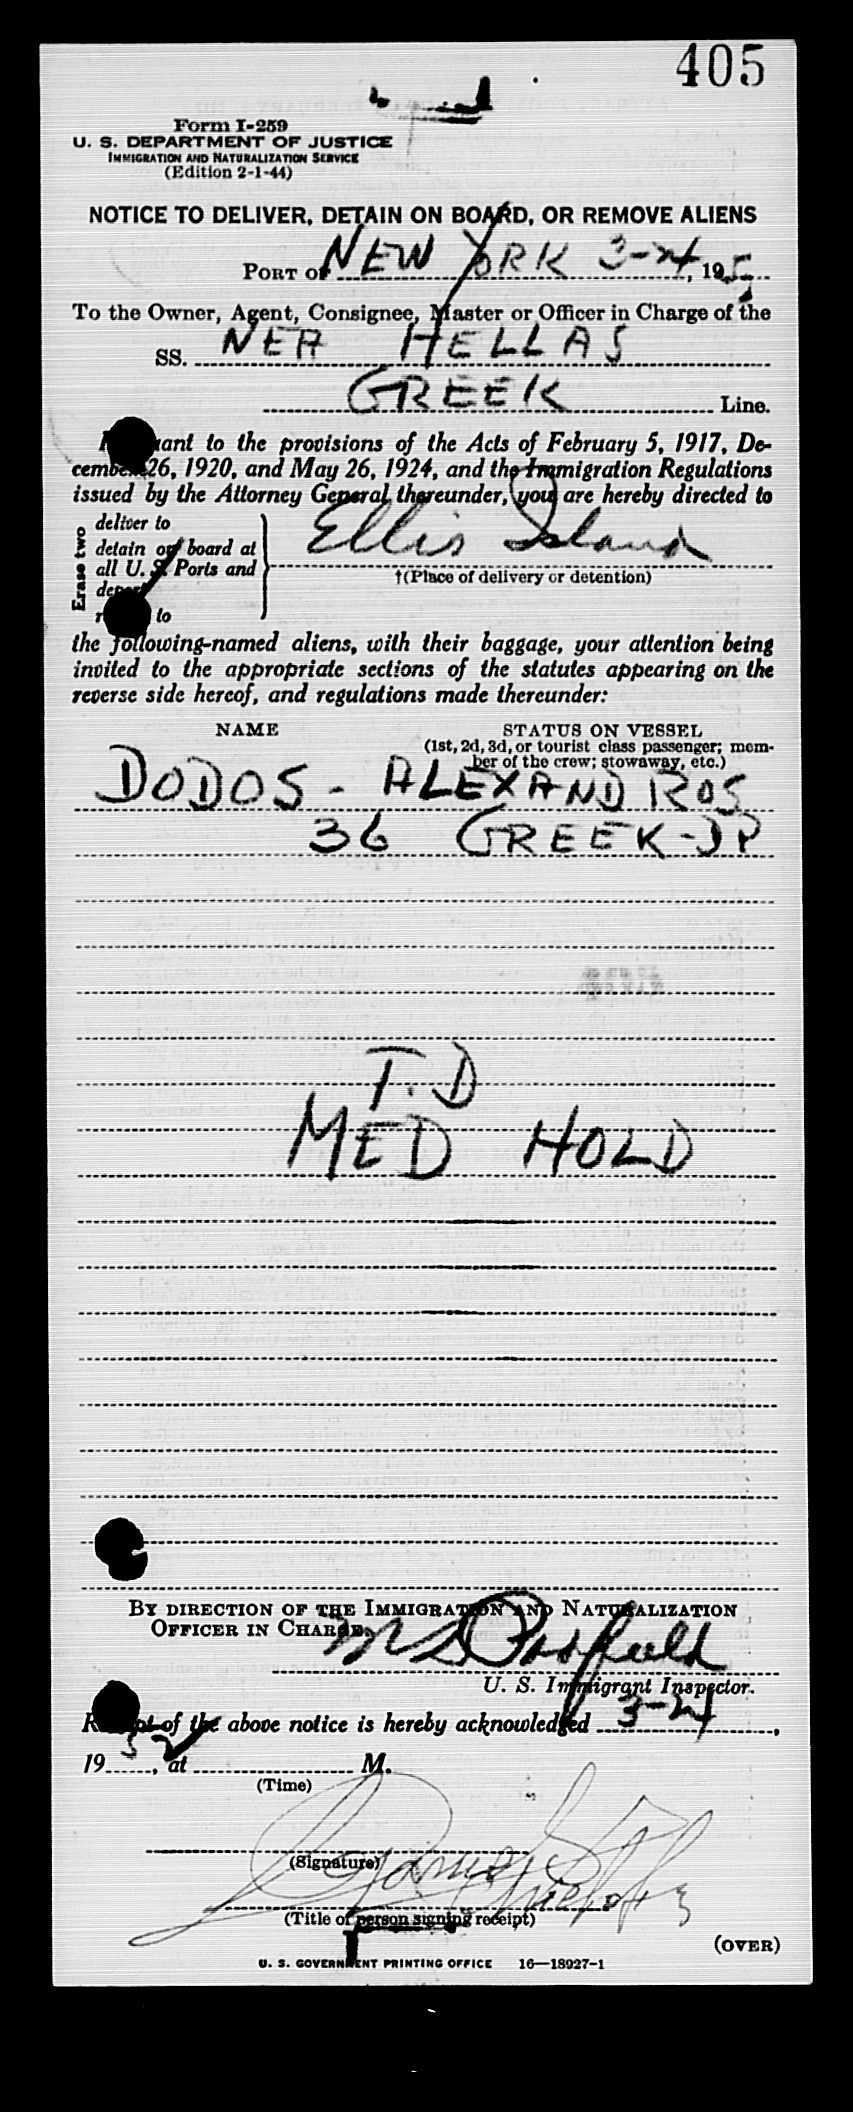 405
Form I-259
U. S. DEPARTMENT OF JUSTICE
IMMIGRATION AND NATURALIZATION SERVICE
(Edition 2-1-44)
NOTICE TO DELIVER, DETAIN ON BOARD, OR REMOVE ALIENS
PORT OF NEW YORK 3-24, 195
To the Owner, Agent, Consignee, Master or Officer in Charge of the
SS. NEA HELLAS
GREEK Line.
to the provisions of the Acts of February 5, 1917, De-
cember 26, 1920, and May 26, 1924, and the Immigration Regulations
issued by the Attorney General thereunder, you are hereby directed to
Erase two
deliver to
detain on board at
all U. S. Ports and
to
Ellis Island
†(Place of delivery or detention)
the following-named aliens, with their baggage, your attention being
invited to the appropriate sections of the statutes appearing on the
reverse side hereof, and regulations made thereunder:
NAME STATUS ON VESSEL
(1st, 2d, 3d, or tourist class passenger; mem-
ber of the crew; stowaway, etc.)
DODOS - ALEXANDROS
36 GREEK-DP
T.D
MED HOLD
BY DIRECTION OF THE IMMIGRATION AND NATURALIZATION
OFFICER IN CHARGE.
U. S. Immigrant Inspector.
Receipt of the above notice is hereby acknowledged 3-24,
195, at M.
(Time)
(Signature)
(Title of person signing receipt)
(OVER)
U. S. GOVERNMENT PRINTING OFFICE 16—18927-1